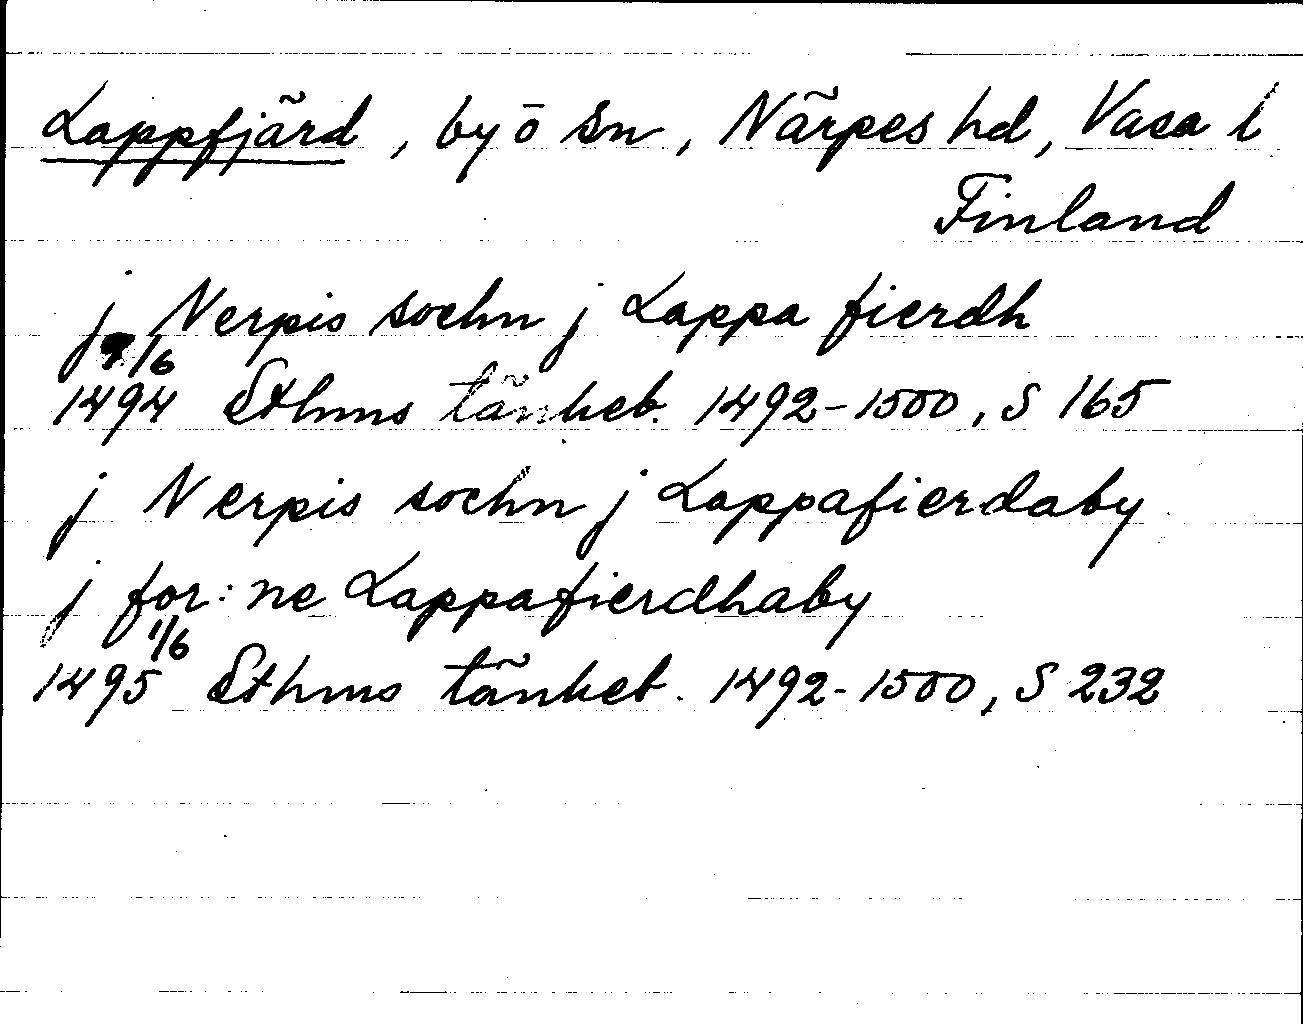 Lappfjärd, by o sn, Närpes hd, Vasa l
Finland
j Nerpis sochn j Lappa fierdh
1494 9/6 Sthms tänkeb. 1492-1500, S 165
j Nerpis sochn j Lappafierdaby
j for:ne Lappafierdhaby
1495 1/6 Sthms tänkeb. 1492-1500, S 232